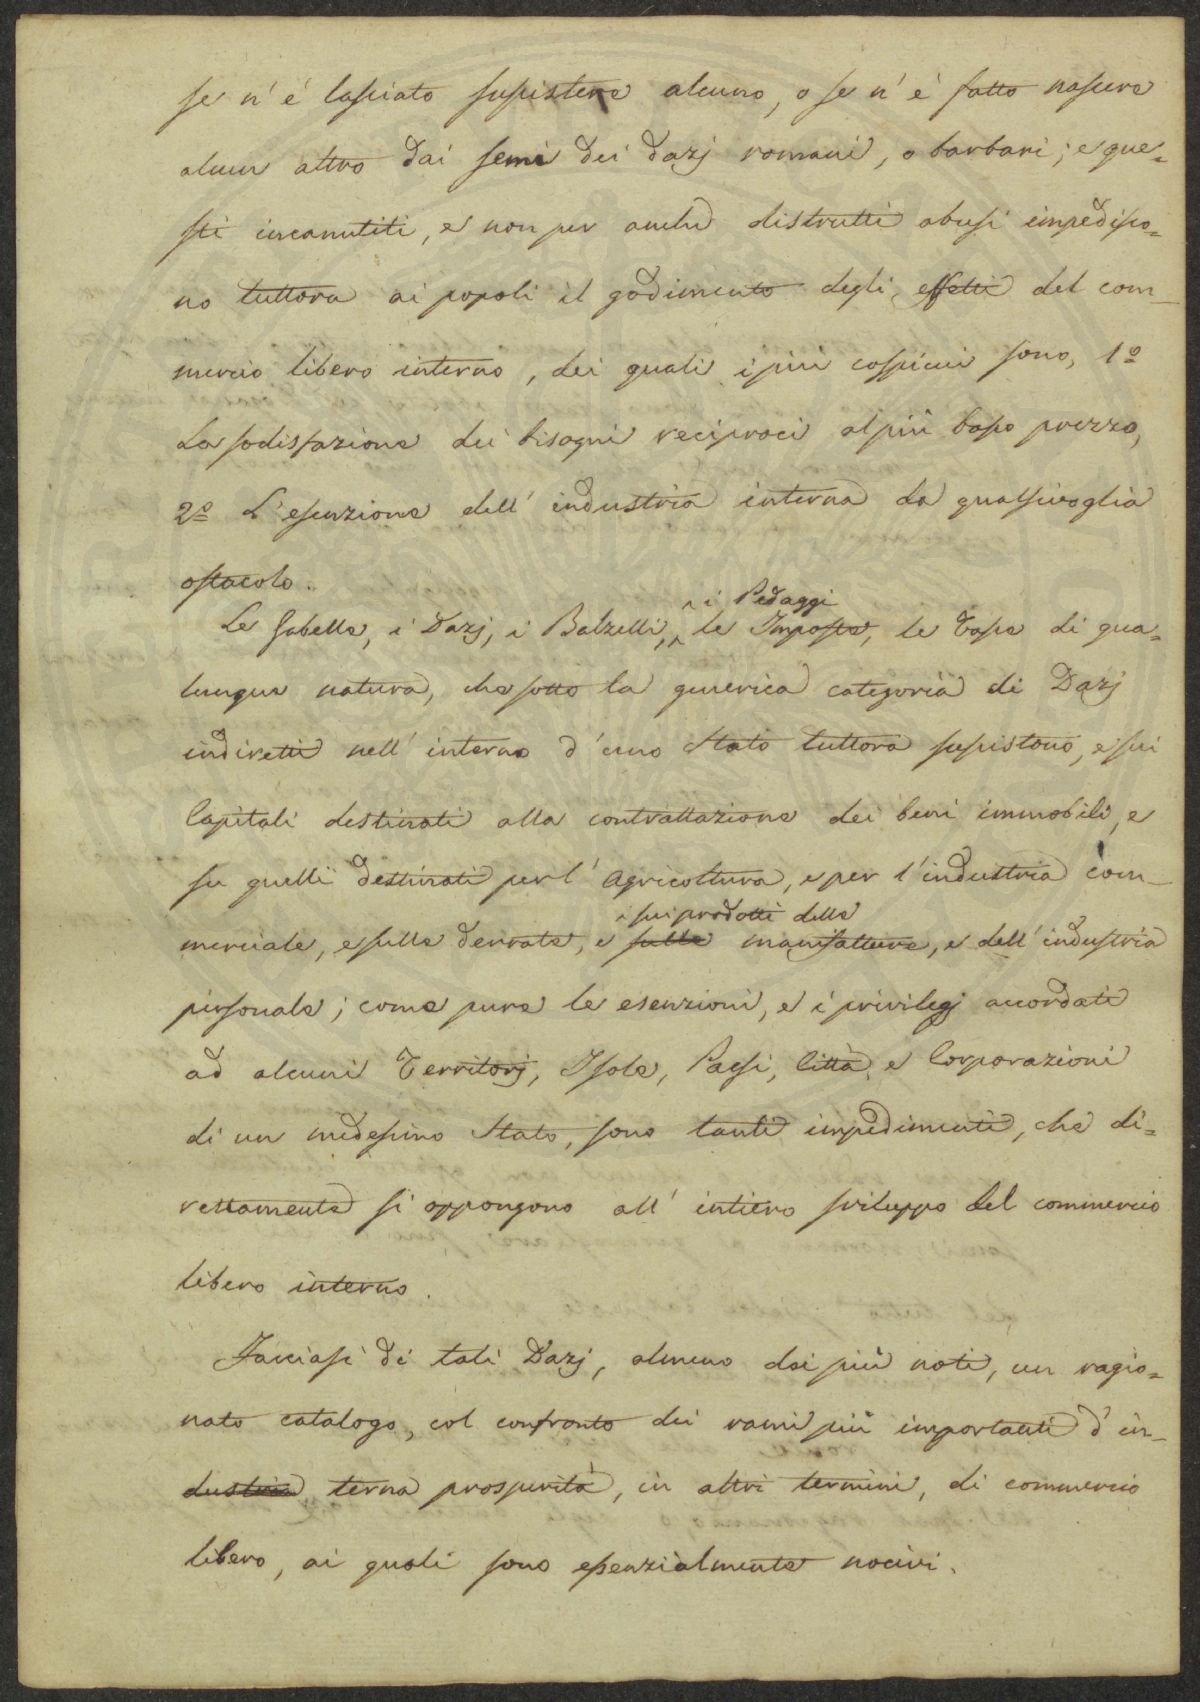 se n'è lasciato sussistere alcuno, o se n'è fatto nascere
alcun altro dai semi dei dazj romani, o barbari; e que=
sti incanutiti, e non per anche distrutti abusi impedisco=
no tuttora ai popoli il godimento degli effetti del com-
mercio libero interno, dei quali i più cospicui sono, 1º
La sodisfazione dei bisogni reciproci al più basso prezzo,
2º L'esenzione dell'industria interna da qualsivoglia
ostacolo.
i Pedaggi
Le Gabelle, i Dazj, i Balzelli, le Imposte, le Tasse di qua=
lunque natura, che sotto la generica categoria di Dazj
indiretti nell'interno d'uno Stato tuttora sussistono, e sui
Capitali destinati alla contrattazione dei beni immobili, e
su quelli destinati per l'agricoltura, e per l'industria com-
i sui prodotti delle
merciale, e sulle derrate, e sulle manifatture, e dell'industria
personale; come pure le esenzioni, e i privilegj accordati
ad alcuni Territorj, Isole, Paesi, Città, e Corporazioni
di un medesimo Stato, sono tanti impedimenti, che di=
rettamente si oppongono all'intiero sviluppo del commercio
libero interno.
Facciasi di tali Dazj, almeno dei più noti, un ragio=
nato catalogo, col confronto dei rami più importanti d'in-
dustria terna prosperità, in altri termini, di commercio
libero, ai quali sono essenzialmente nocivi.